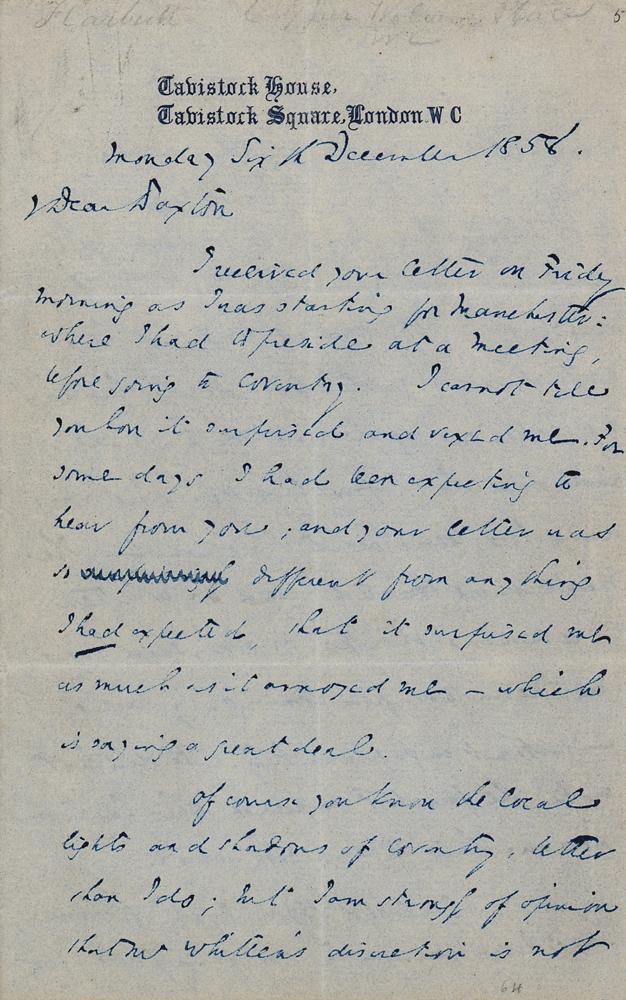 5
Tavistock House,
Tavistock Square, London W C
Monday Sixth December 1858.
Dear Paxton
I received your letter on Friday
morning as I was starting for Manchester:
where I had to preside at a meeting,
before going to Coventry. I cannot tell
you how it surprised and vexed me. For
some days I had been expecting to
hear from you; and your letter was
so different from anything
I had expected, that it surprised me
as much as it annoyed me – which
is saying a great deal.
Of course you know the local
lights and shadows of Coventry, better
than I do; but I am strongly of opinion
that Mr Whittem's discretion is not
64